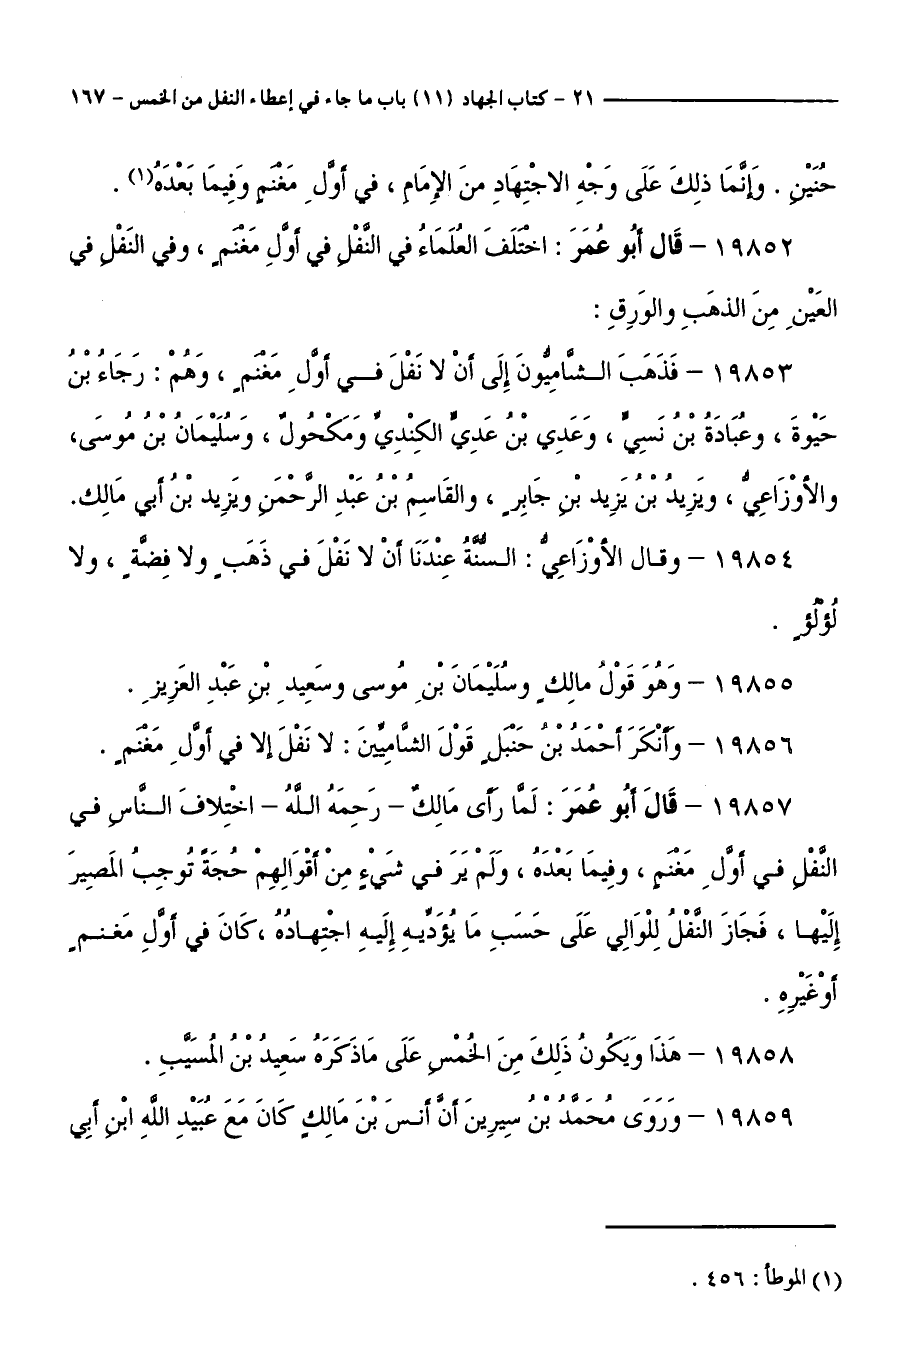 ٢١ - كتاب الجهاد (١١) باب ما جاء في إعطاء النفل من الخمس - ١٦٧
حُنَيْنٍ . وَإِنَّمَا ذلِكَ عَلَى وَجْهِ الاجْتِهَادِ مِنَ الإِمَامِ ، في أَوَّلِ مَغْنَمٍ وَفِيمَا بَعْدَهُ(١) .
١٩٨٥٢ - قَال أَبُو عُمَرَ : اخْتَلَفَ العُلَمَاءُ في النَّفْلِ في أَوَّلِ مَغْنَمٍ ، وفي النَفْلِ في
العَيْنِ مِنَ الذهَبِ والوَرِقِ :
١٩٨٥٣ - فَذَهَبَ الشَّامِيُّونَ إِلَى أَنْ لا نَفْلَ فِي أَوَّلِ مَغْنَمٍ ، وَهُمْ : رَجَاءُ بْنُ
حَيْوةَ ، وعُبَادَةُ بْنُ نَسِيٍّ ، وَعَدِي بْنُ عَدِيٍّ الكِنْدِيُّ وَمَكْحُولٌ ، وَسُلَيْمَانُ بْنُ مُوسَى،
والأَوْزَاعِيُّ ، ويَزِيدُ بْنُ يَزِيد بْنِ جَابِرٍ ، والقَاسِمُ بْنُ عَبْدِ الرَّحْمَنِ وَيَزِيد بْنُ أَبي مَالِك.
١٩٨٥٤ - وقال الأَوْزَاعِيُّ : السُّنَّةُ عِنْدَنَا أَنْ لا نَفْلَ فِي ذَهَبٍ ولا فِضَّةٍ ، ولا
لُؤْلُؤٍ .
١٩٨٥٥ - وَهُوَ قَوْلُ مالِكٍ وسُلَيْمَانَ بْنِ مُوسى وسَعِيدِ بْنِ عَبْدِ العَزِيزِ .
١٩٨٥٦ - وَأَنْكَرَ أَحْمَدُ بْنُ حَنْبَلٍ قَوْلَ الشَّامِيِّينَ : لا نَفْلَ إلا في أَوَّلِ مَغْنَمٍ .
١٩٨٥٧ - قَالَ أَبُو عُمَرَ : لَمَّا رَأَى مَالِكٌ - رَحِمَهُ اللَّهُ - اخْتِلافَ النَّاسِ فِي
النَّفْلِ فِي أَوَّلِ مَغْنَمٍ ، وفِيمَا بَعْدَهُ ، وَلَمْ يَرَ فِي شَيْءٍ مِنْ أَقْوَالِهِمْ حُجَّةً تُوجِبُ المَصِيرَ
إِلَيْها ، فَجَازَ النَّفْلُ لِلْوَالِي عَلَى حَسَبِ مَا يُؤَدِّيهِ إِلَيهِ اجْتِهادُهُ ،كَانَ في أَوَّلِ مَغنمٍ
أَوغَيْرِهِ .
١٩٨٥٨ - هَذَا وَيَكُونُ ذَلِكَ مِنَ الخُمْسِ عَلَى مَاذَكَرَهُ سَعِيدُ بْنُ المُسَيَّبِ .
١٩٨٥٩ - وَرَوَى مُحَمَّدُ بْنُ سِيرِينَ أَنَّ أَنسَ بْنَ مَالِكٍ كَانَ مَعَ عُبَيْدِ اللَّهِ ابْنِ أَبِي
(١) الموطأ : ٤٥٦ .